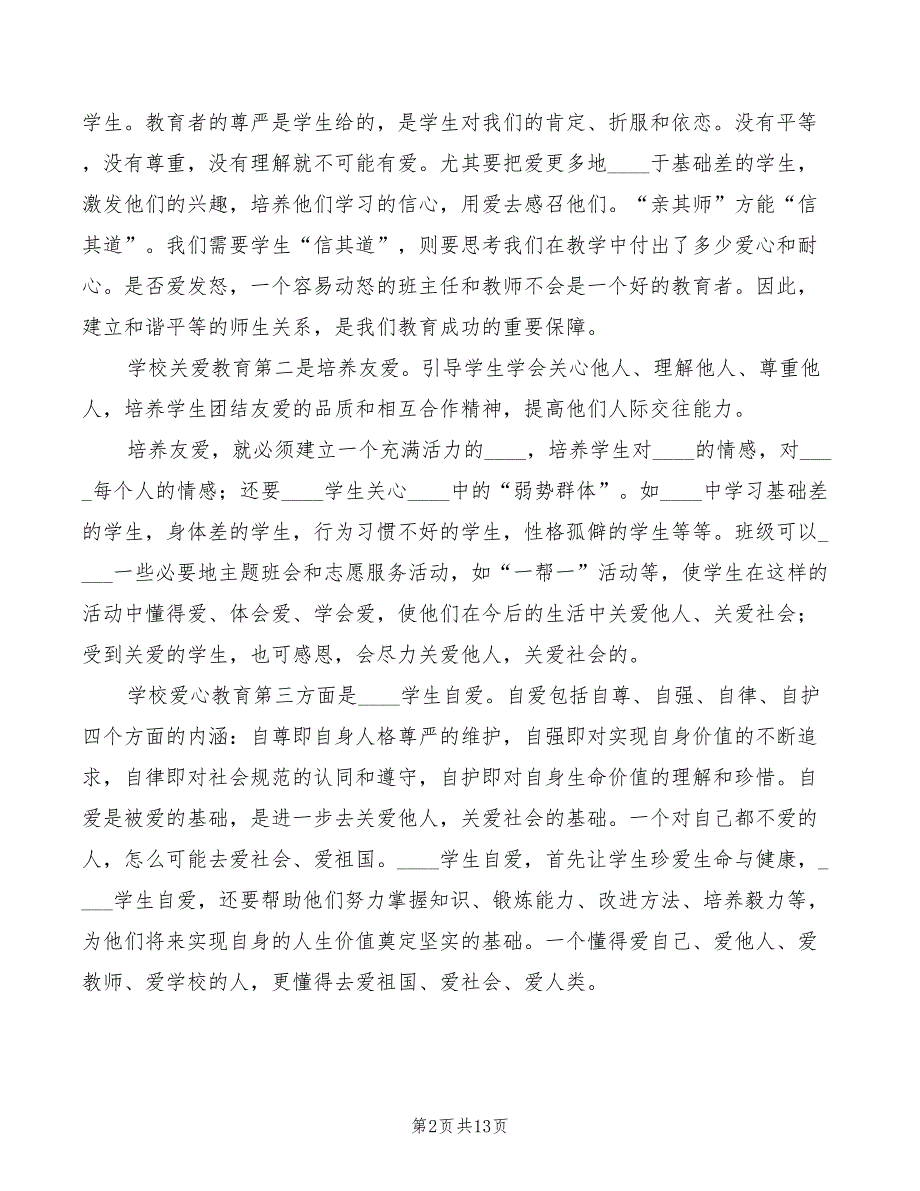 学生。教育者的尊严是学生给的，是学生对我们的肯定、折服和依恋。没有平等
，没有尊重，没有理解就不可能有爱。尤其要把爱更多地____于基础差的学生，
激发他们的兴趣，培养他们学习的信心，用爱去感召他们。“亲其师”方能“信
其道”。我们需要学生“信其道”，则要思考我们在教学中付出了多少爱心和耐
心。是否爱发怒，一个容易动怒的班主任和教师不会是一个好的教育者。因此，
建立和谐平等的师生关系，是我们教育成功的重要保障。
学校关爱教育第二是培养友爱。引导学生学会关心他人、理解他人、尊重他
人，培养学生团结友爱的品质和相互合作精神，提高他们人际交往能力。
培养友爱，就必须建立一个充满活力的____，培养学生对____的情感，对___
_每个人的情感；还要____学生关心____中的“弱势群体”。如____中学习基础差
的学生，身体差的学生，行为习惯不好的学生，性格孤僻的学生等等。班级可以_
___一些必要地主题班会和志愿服务活动，如“一帮一”活动等，使学生在这样的
活动中懂得爱、体会爱、学会爱，使他们在今后的生活中关爱他人、关爱社会；
受到关爱的学生，也可感恩，会尽力关爱他人，关爱社会的。
学校爱心教育第三方面是____学生自爱。自爱包括自尊、自强、自律、自护
四个方面的内涵：自尊即自身人格尊严的维护，自强即对实现自身价值的不断追
求，自律即对社会规范的认同和遵守，自护即对自身生命价值的理解和珍惜。自
爱是被爱的基础，是进一步去关爱他人，关爱社会的基础。一个对自己都不爱的
人，怎么可能去爱社会、爱祖国。____学生自爱，首先让学生珍爱生命与健康，_
___学生自爱，还要帮助他们努力掌握知识、锻炼能力、改进方法、培养毅力等，
为他们将来实现自身的人生价值奠定坚实的基础。一个懂得爱自己、爱他人、爱
教师、爱学校的人，更懂得去爱祖国、爱社会、爱人类。
第2页共13页